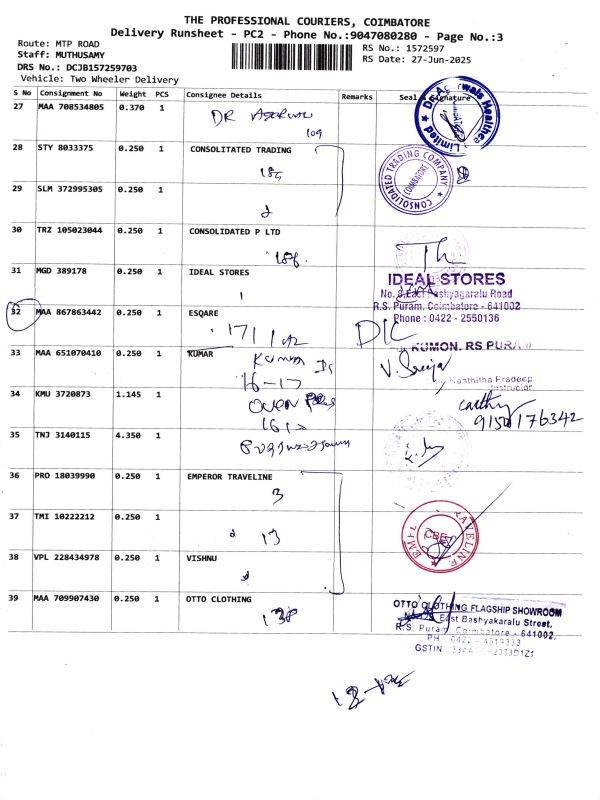 THE PROFESSIONAL COURIERS, COIMBATORE
Delivery Runsheet - PC2 - Phone No.:9047080280 - Page No.:3
Route: MTP ROAD
Staff: MUTHUSAMY
DRS No.: DCJB157259703
Vehicle: Two Wheeler Delivery
RS No.: 1572597
RS Date: 27-Jun-2025
S No Consignment No Weight PCS Consignee Details Remarks Seal & Signature
27 MAA 708534805 0.370 1 DR
109
28 STY 8033375 0.250 1 CONSOLITATED TRADING
185
CONSOLIDATED TRADING COMPANY
COIMBATORE
29 SLM 372995305 0.250 1
30 TRZ 105023044 0.250 1 CONSOLIDATED P LTD
186
31 MGD 389178 0.250 1 IDEAL STORES
1
IDEAL STORES
R.S. Puram, Coimbatore - 641002
Phone : 0422 - 2550136
32 MAA 867863442 0.250 1 ESQARE
D/C
33 MAA 651070410 0.250 1 KUMAR
KUMON, RS PURAM
16-17
Instructor
34 KMU 3720873 1.145 1
9150176342
35 TNJ 3140115 4.350 1
36 PRO 18039990 0.250 1 EMPEROR TRAVELINE
3
37 TMI 10222212 0.250 1
13
CBE
38 VPL 228434978 0.250 1 VISHNU
39 MAA 709907430 0.250 1 OTTO CLOTHING
138
OTTO CLOTHING FLAGSHIP SHOWROOM
East Bashyakaralu Street,
R.S. Puram, Coimbatore - 641002.